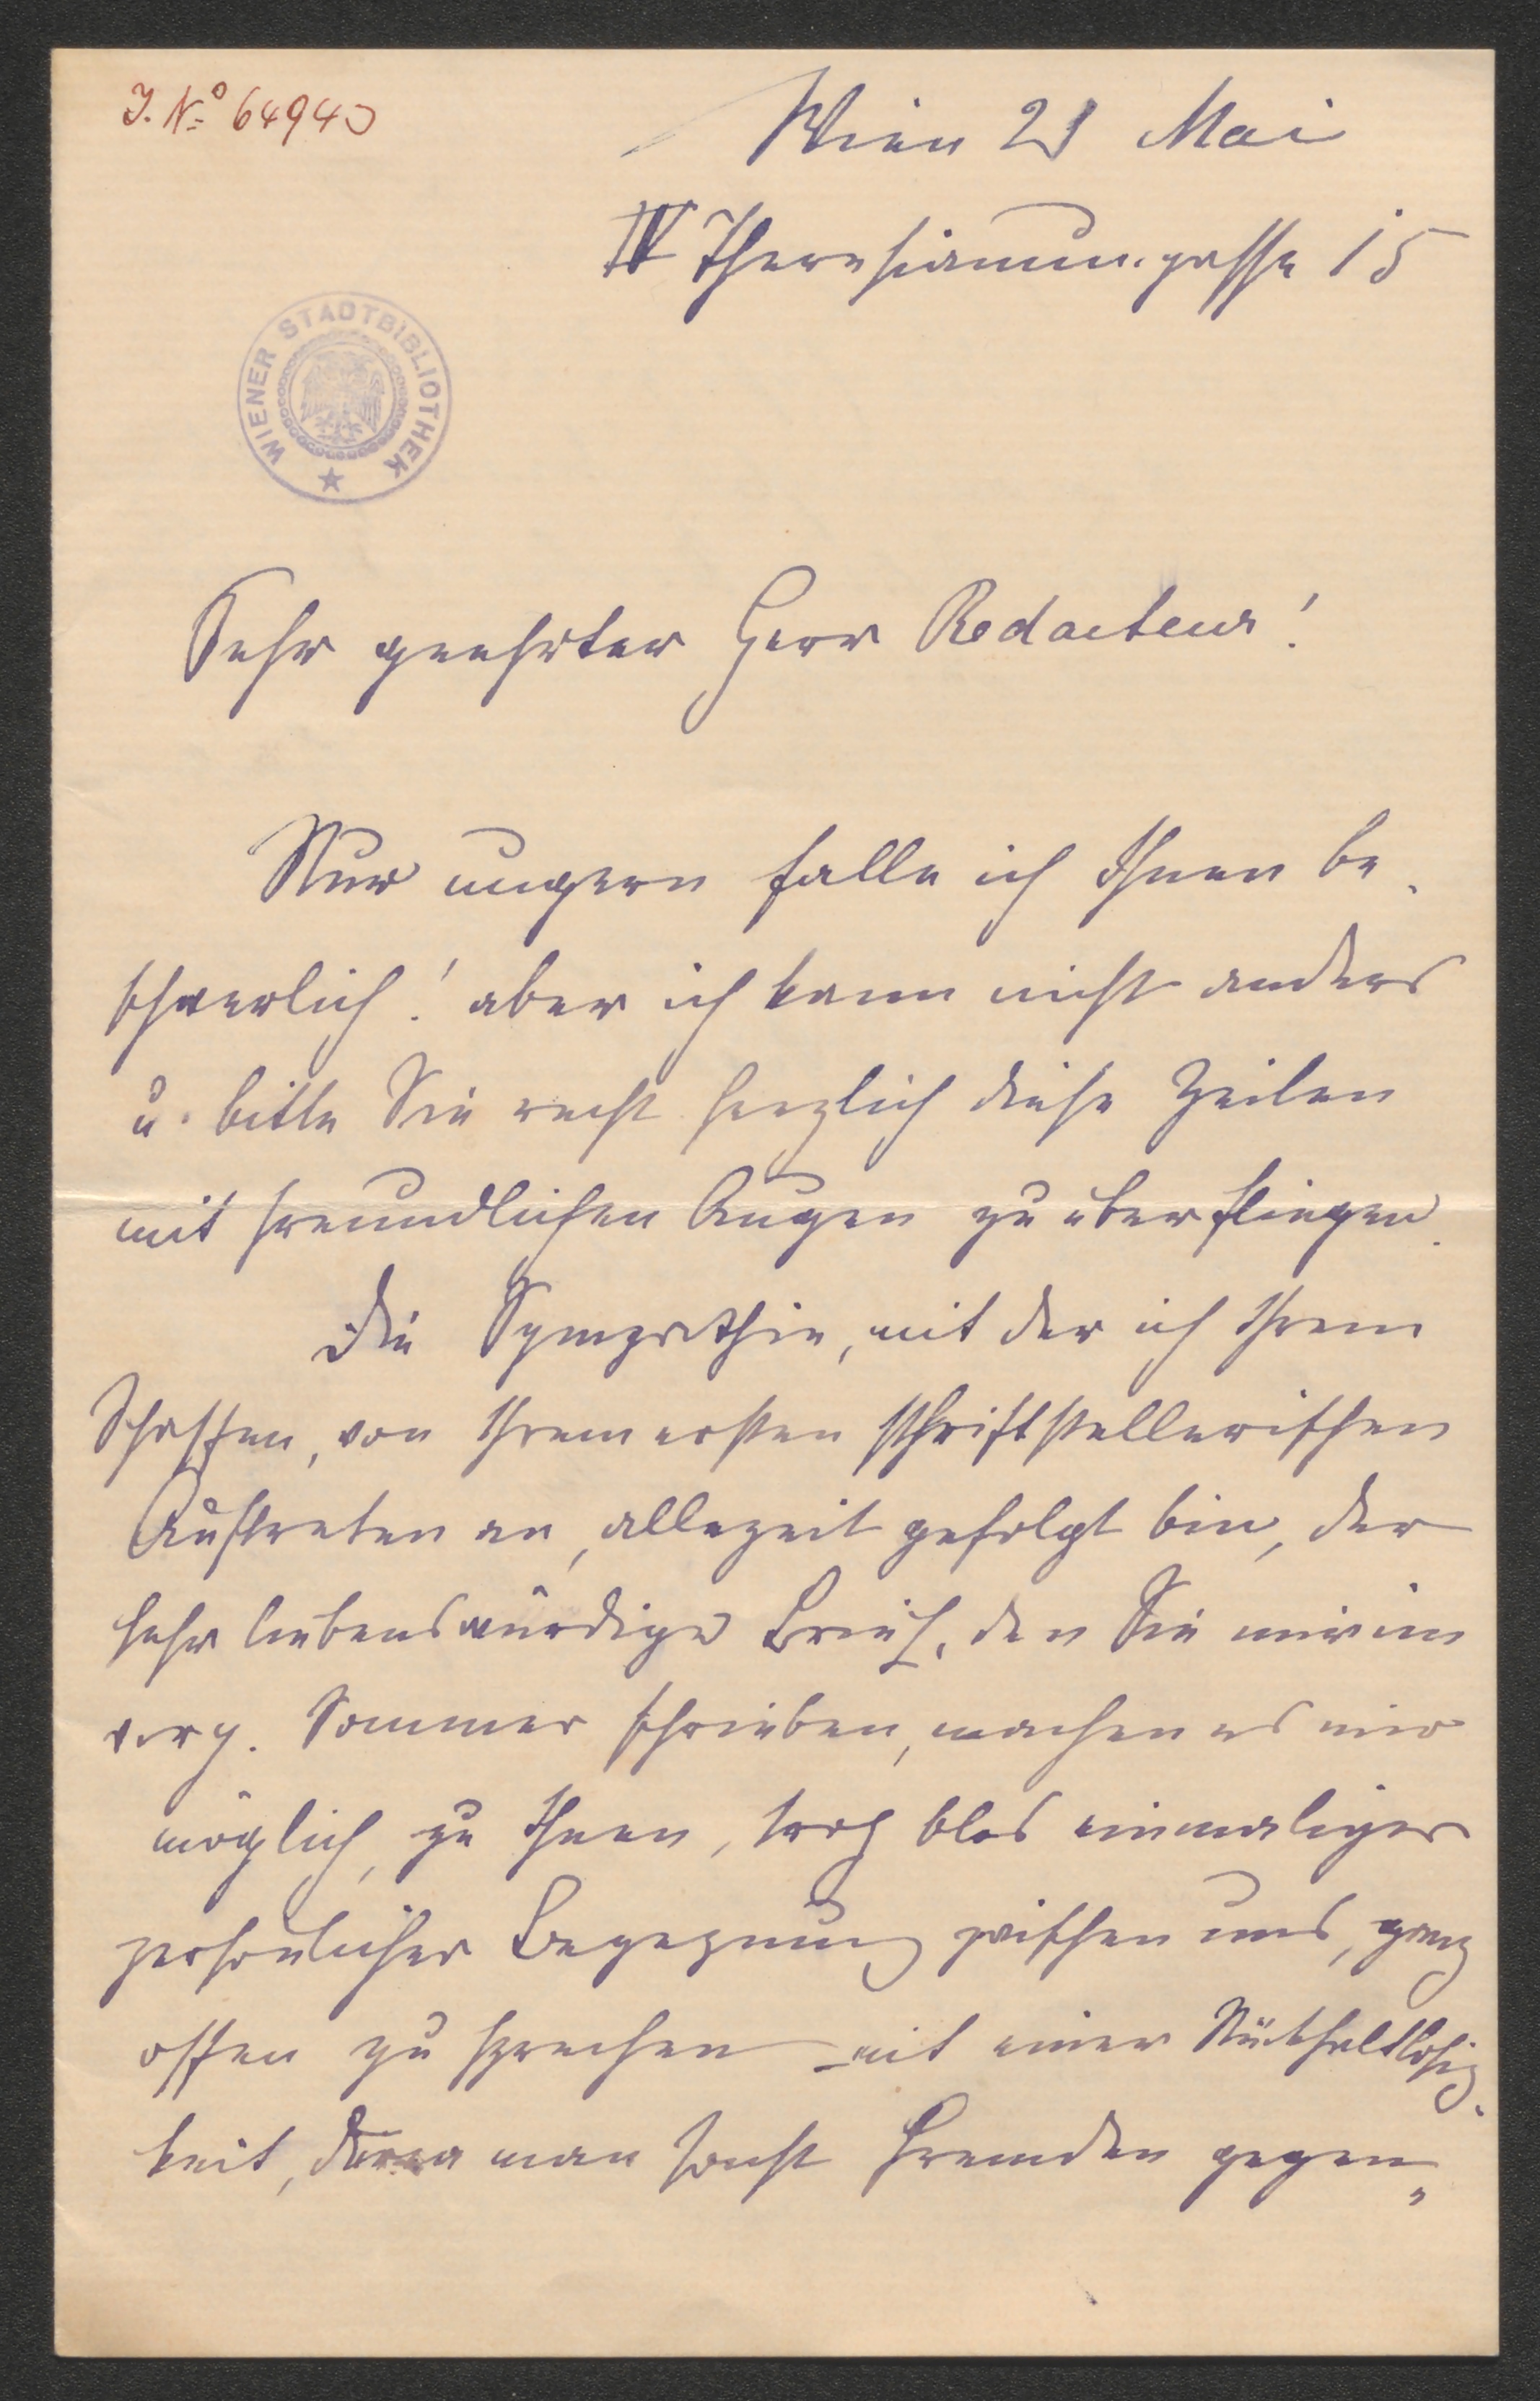 J. No 64940
Wien 21 Mai
IV Theresianumgasse 15
WIENER STADTBIBLIOTHEK
Sehr geehrter Herr Redacteur!
Nur ungern falle ich Ihnen be-
schwerlich! aber ich kann nicht anders
u. bitte Sie recht herzlich diese Zeilen
mit freundlichen Augen zu überfliegen.
Die Sympathie, mit der ich Ihrem
Schaffen, von Ihrem ersten schriftstellerischen
Auftreten an, allezeit gefolgt bin, der
sehr liebenswürdige Brief, den Sie mir im
vorg. Sommer schrieben, machen es mir
möglich, zu Ihnen, trotz blos einmaliger
persönlicher Begegnung zwischen uns, ganz
offen zu sprechen mit einer Rückhaltlosig-
keit, deren man sonst Fremden gegen-